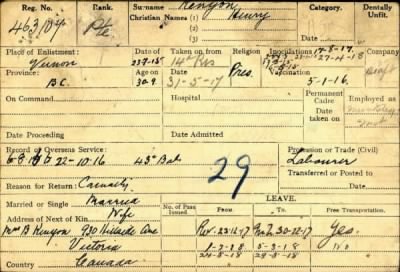 Reg. No. Rank. Surname Kenyon Category. Dentally Unfit.
463104 Pte Christian Names Henry
Place of Enlistment: Date of Taken on from Religion Inoculations 17-8-17.
Vernon 23-7-15 14th Res 27-4-18
Province: Age on Pres. Vaccination
B.C. 30.9 31-5-17 5-1-16.
On Command Hospital Permanent Cadre Employed as
Date taken on
Date Proceeding Date Admitted
Record of Overseas Service: Profession or Trade (Civil)
22-10-16 43rd Bat 29 Labourer
Transferred or Posted to
Reason for Return: Casualty
Married or Single Married LEAVE.
Address of Next of Kin Wife No. of Pass Issued. From To Free Transportation.
Mrs B Kenyon 930 Hillside Ave 22-12-17 30-12-17 Yes.
Victoria 1-3-18 5-3-18 No
Country Canada 24-8-18 29-8-18